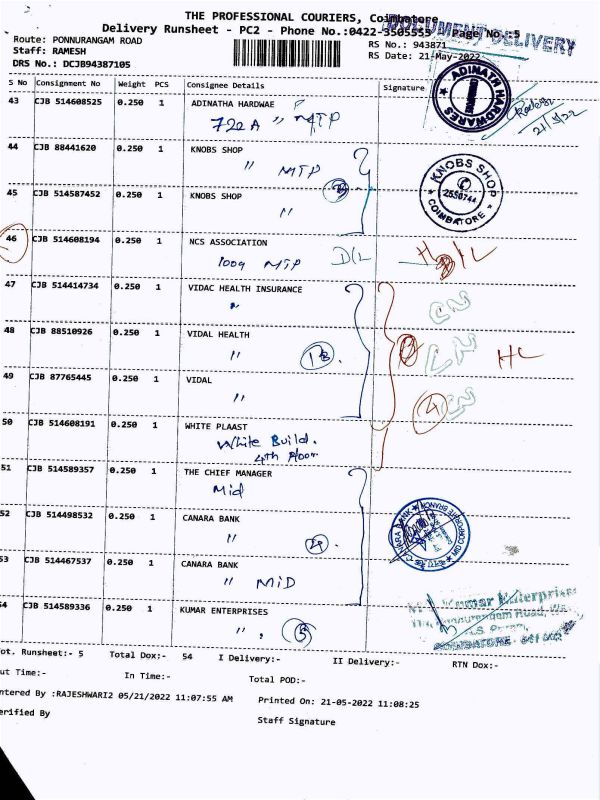 THE PROFESSIONAL COURIERS, Coimbatore
Delivery Runsheet - PC2 - Phone No.:0422-3505555 Page No.:5
DOCUMENT DELIVERY
Route: PONNURANGAM ROAD
RS No.: 943871
Staff: RAMESH
RS Date: 21-May-2022
DRS No.: DCJB94387105
S No Consignment No Weight PCS Consignee Details Signature
43 CJB 514608525 0.250 1 ADINATHA HARDWAE
722A " MTP
ADINATH HARDWARES
21/5/22
44 CJB 88441620 0.250 1 KNOBS SHOP
" MTP
KNOBS SHOP
2550744
COIMBATORE
45 CJB 514587452 0.250 1 KNOBS SHOP
"
46 CJB 514608194 0.250 1 NCS ASSOCIATION
1009 MTP D/L
47 CJB 514414734 0.250 1 VIDAC HEALTH INSURANCE
"
48 CJB 88510926 0.250 1 VIDAL HEALTH
" HL
49 CJB 87765445 0.250 1 VIDAL
" 4
50 CJB 514608191 0.250 1 WHITE PLAAST
White Build.
4th Floor
51 CJB 514589357 0.250 1 THE CHIEF MANAGER
Mid
52 CJB 514498532 0.250 1 CANARA BANK
"
CANARA BANK
53 CJB 514467537 0.250 1 CANARA BANK
" MID
54 CJB 514589336 0.250 1 KUMAR ENTERPRISES
" , 5
Kumar Enterprises
Ponnurangam Road
COIMBATORE - 641 002
ot. Runsheet:- 5 Total Dox:- 54 I Delivery:- II Delivery:- RTN Dox:-
ut Time:- In Time:- Total POD:-
ntered By :RAJESHWARI2 05/21/2022 11:07:55 AM Printed On: 21-05-2022 11:08:25
erified By Staff Signature